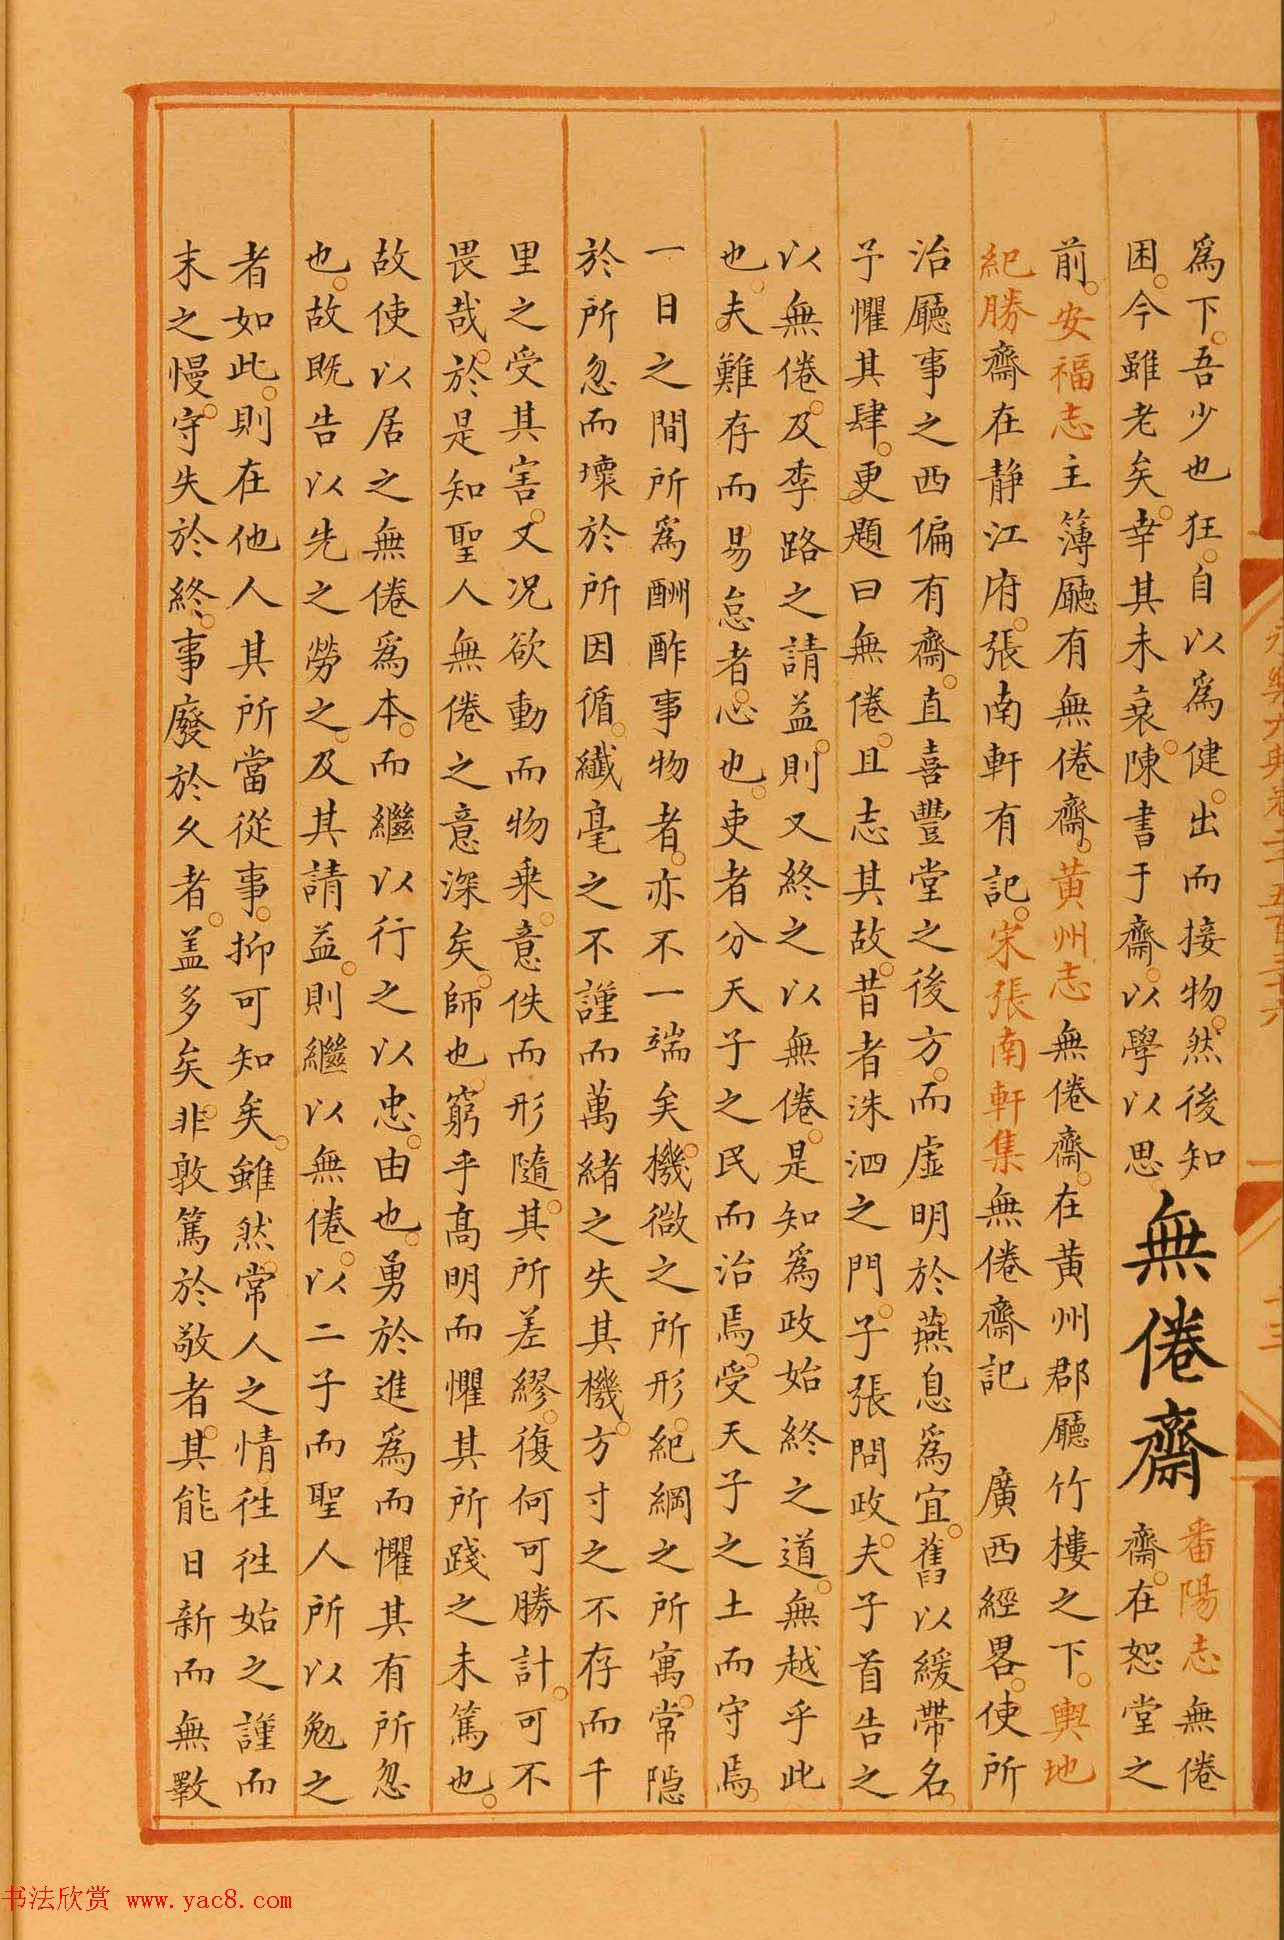 爲下。吾少也狂。自以爲健。出而接物。然後知
困。今雖老矣。幸其未衰。陳書于齋。以學以思
無倦齋
番陽志無倦
齋。在恕堂之
前。安福志主簿廳有無倦齋。黄州志無倦齋。在黄州郡廳竹樓之下。輿地
紀勝齋在靜江府。張南軒有記。宋張南軒集無倦齋記 廣西經畧。使所
治廳事之西偏有齋。直喜豐堂之後方。而虛明於燕息爲宜。舊以緩帶名。
予懼其肆。更題曰無倦。且志其故。昔者洙泗之門。子張問政。夫子首告之
以無倦。及季路之請益。則又終之以無倦。是知爲政始終之道。無越乎此
也。夫難存而易怠者。心也。吏者分天子之民而治焉。受天子之土而守焉。
一日之間所爲酬酢事物者。亦不一端矣。機微之所形。紀綱之所寓。常隱
於所忽而壞於所因循。纖毫之不謹而萬緒之失其機。方寸之不存而千
里之受其害。又况欲動而物乗。意佚而形隨。其所差繆。復何可勝計。可不
畏哉。於是知聖人無倦之意深矣。師也。窮乎高明而懼其所踐之未篤也。
故使以居之無倦爲本。而繼以行之以忠。由也。勇於進爲而懼其有所忽
也。故既告以先之勞之。及其請益。則繼以無倦。以二子而聖人所以勉之
者如此。則在他人其所當從事。抑可知矣。雖然。常人之情。徃徃始之謹而
末之慢。守失於終。事廢於久者。盖多矣。非敦篤於敬者。其能日新而無斁
书法欣赏 www.yac8.com